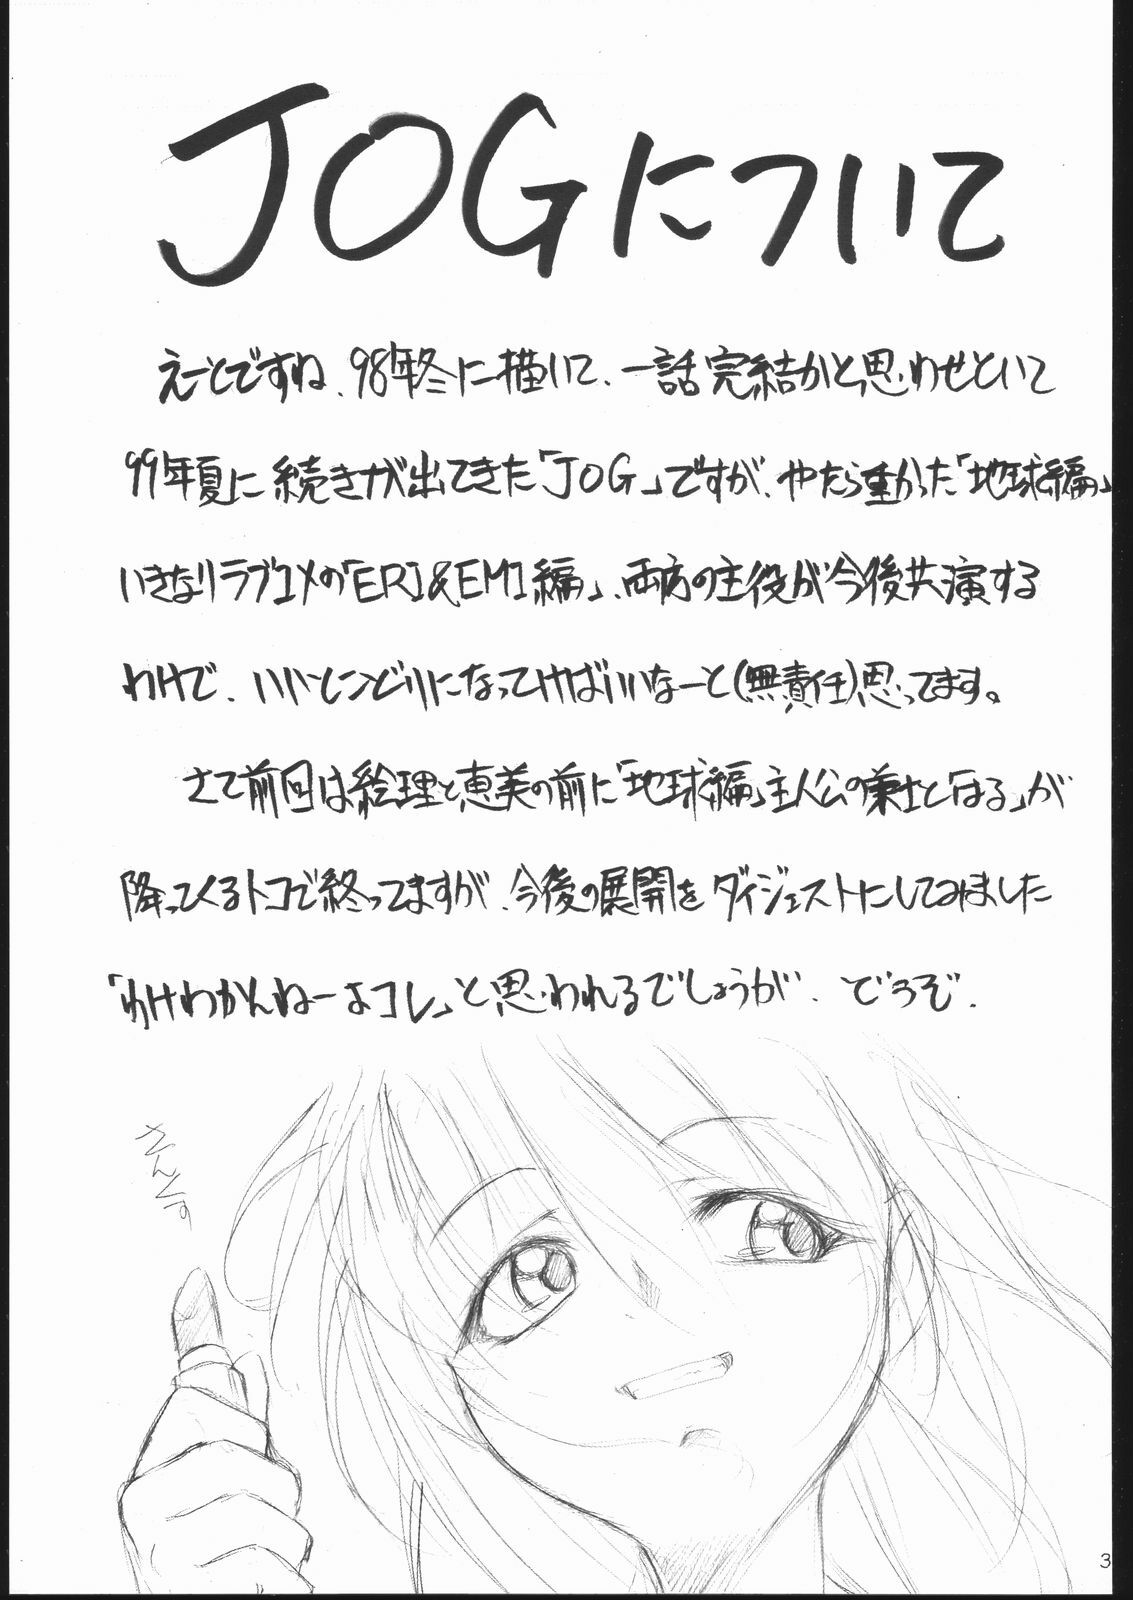 JOGについて
えーとですね、98年冬に描いて、一話完結かと思わせといて
99年夏に続きが出てきた「JOG」ですが、やたら重かった「地球編」
いきなりラブコメの「ERI&EMI編」、両方の主役が今後共演する
わけで、いいとこどりになってけばいいなーと(無責任)思ってます。
さて前回は絵理と恵美の前に「地球編」主人公の兼士と「はる」が
降ってくるトコで終ってますが、今後の展開をダイジェストにしてみました
「わけわかんねーよコレ」と思われるでしょうが、どうぞ.
さんぷる
3